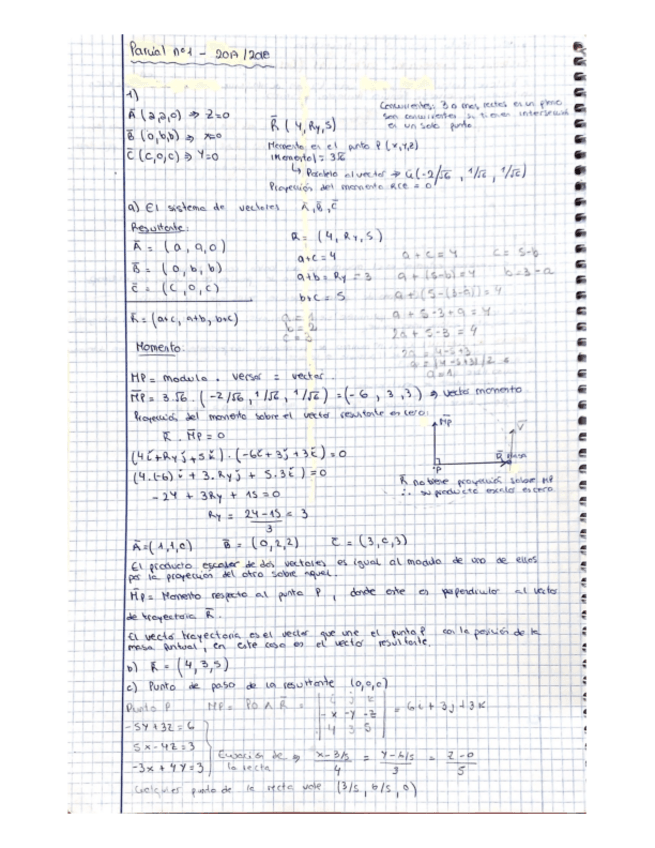 Parcial nº1 - 20A/20E
1)
Ā (a,a,0) ⇒ Z=0
B̄ (0,b,b) ⇒ x=0
C̄ (c,0,c) ⇒ Y=0
R̄ (4, Ry, 5)
Momento en el punto P (x,y,z)
|Momento| = 3√6
↳ Paralelo al vector → ū(-2/√6, 1/√6, 1/√6)
Proyección del momento = 0
Concurrentes: 3 o mas rectas en un plano
son concurrentes si tienen intersección
en un solo punto.
a) El sistema de vectores Ā, B̄, C̄
Resultante:
Ā = (a, a, 0)
B̄ = (0, b, b)
C̄ = (c, 0, c)
R̄ = (a+c, a+b, b+c)
R = (4, Ry, 5)
a+c = 4
a+b = Ry = 3
b+c = 5
a = 1
b = 2
c = 3
a + c = 4
c = 5-b
a + (5-b) = 4
b = 3-a
a + (5-(3-a)) = 4
a + 5-3+a = 4
2a + 5-3 = 4
2a = 4-5+3
a = 1
Momento:
MP = modulo . versor = vector
M̄P = 3√6 . (-2/√6, 1/√6, 1/√6) = (-6, 3, 3) ⇒ vector momento
Proyección del momento sobre el vector resultante es cero:
R̄ . M̄P = 0
(4i+Ryj+5k) . (-6i+3j+3k) = 0
(4.(-6) i + 3.Ryj + 5.3k) = 0
-24 + 3Ry + 15 = 0
Ry = 24-15 / 3 = 3
M̄P
V̄
P
masa
R̄ no tiene proyección sobre MP
∴ su producto escalar es cero.
Ā = (1,1,0) B̄ = (0,2,2) C̄ = (3,0,3)
El producto escalar de dos vectores es igual al modulo de uno de ellos
por la proyección del otro sobre aquel.
M̄P = Momento respecto al punto P, donde este es perpendicular al vector
de trayectoria R̄.
El vector trayectoria es el vector que une el punto P con la posición de la
masa puntual, en este caso es el vector resultante.
b) R̄ = (4,3,5)
c) Punto de paso de la resultante (0,0,0)
Punto P MP = P̄O ∧ R̄ = | i j k | -x -y -z | 4 3 5 | = 6i + 3j + 3k
-5y + 3z = 6
5x - 4z = 3
-3x + 4y = 3
Ecuación de la recta ⇒ x-3/5 / 4 = y-6/5 / 3 = z-0 / 5
Cualquier punto de la recta vale (3/5, 6/5, 0)